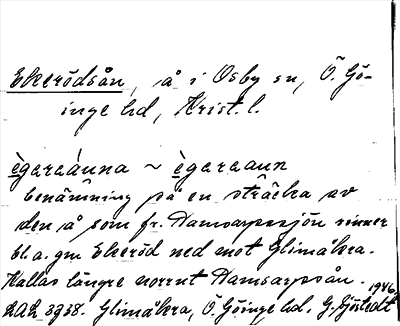 Ekerödsån, å i Osby sn, Ö. Gö-
inge hd, Krist. l.
ègaraáuna ~ ègaraaun
benämning på en sträcka av
den å som fr. Hamsarpssjön rinner
bl.a. gm Ekeröd ned mot Glimåkra.
Kallas längre norrut Hamsarpsån.
LAL 3938. Glimåkra, Ö. Göinge hd. G. Sjöstedt 1946